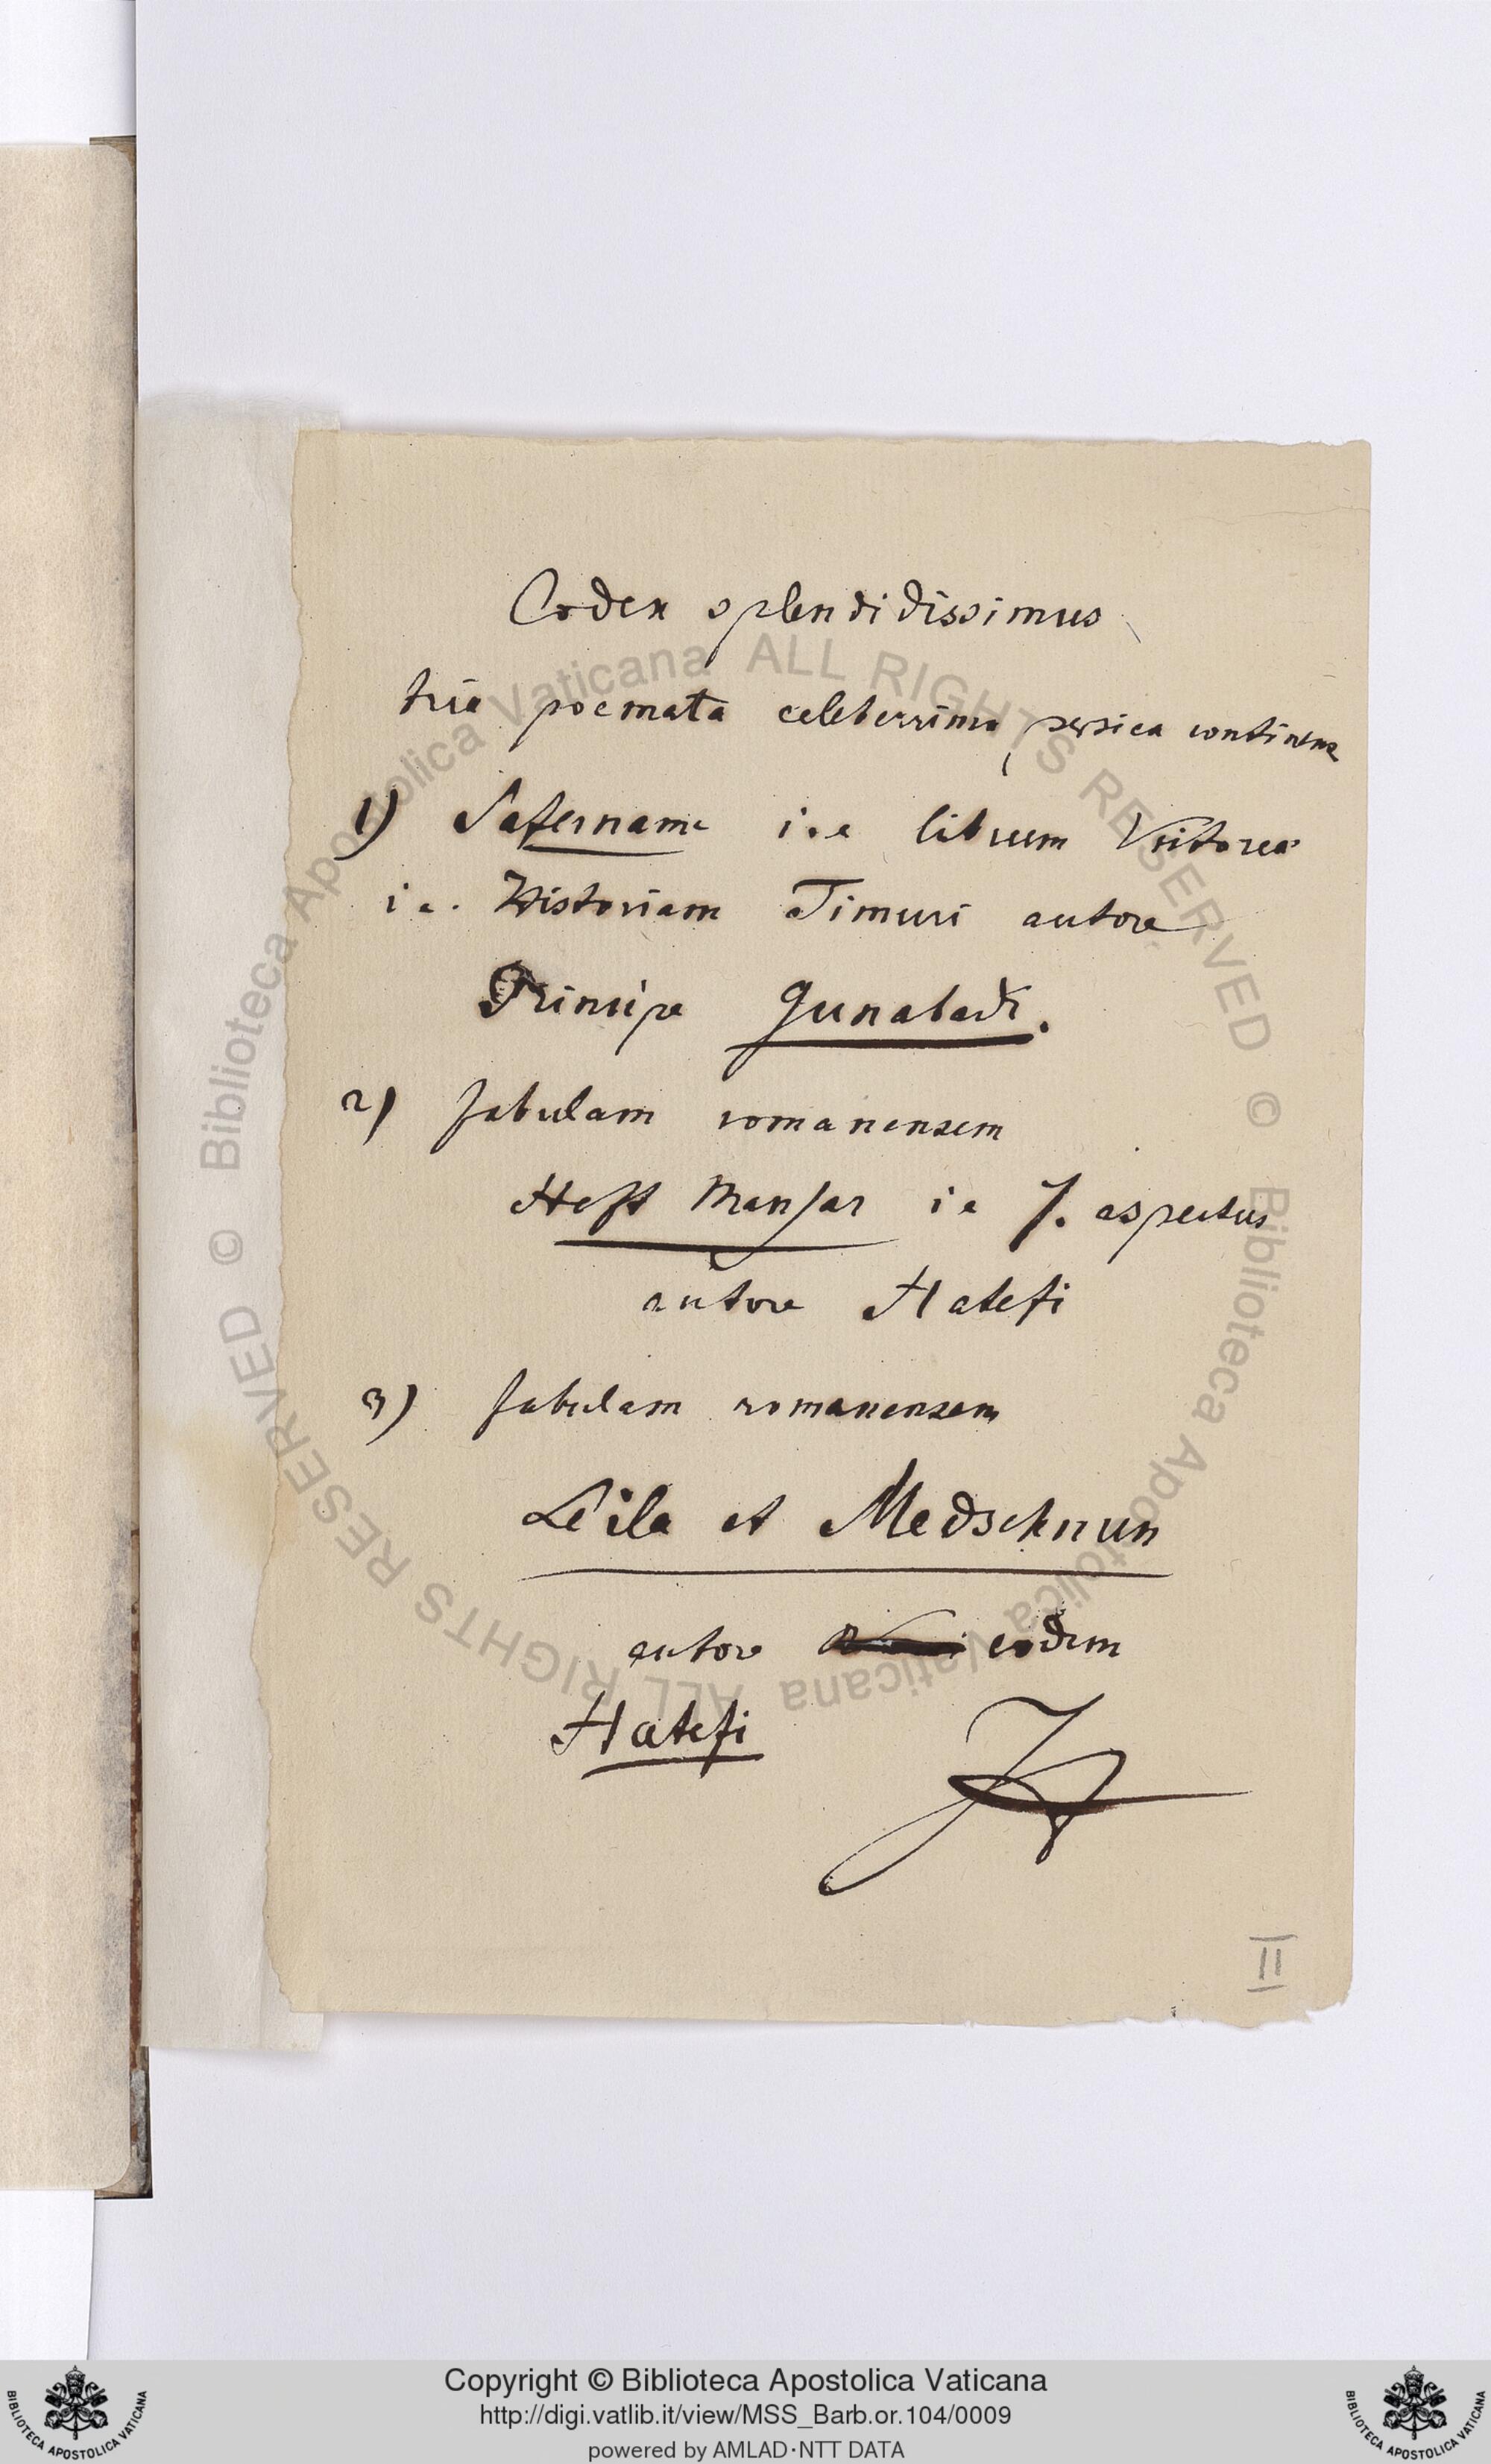 Codex splendidissimus
tria poemata celeberrima persica continens
1) Safername i.e librum Victoriae
i e. Historiam Timuri autore
Principe Gunabadi.
2) fabulam romanensem
Heft Mansar i e 7. aspectus
autore Hatefi
3) fabulam romanensem
Leila et Medschnun
autore eodem
Hatefi
II
© Biblioteca Apostolica Vaticana ALL RIGHTS RESERVED © Biblioteca Apostolica Vaticana ALL RIGHTS RESERVED
Copyright © Biblioteca Apostolica Vaticana
http://digi.vatlib.it/view/MSS_Barb.or.104/0009
powered by AMLAD·NTT DATA
BIBLIOTECA APOSTOLICA VATICANA
BIBLIOTECA APOSTOLICA VATICANA